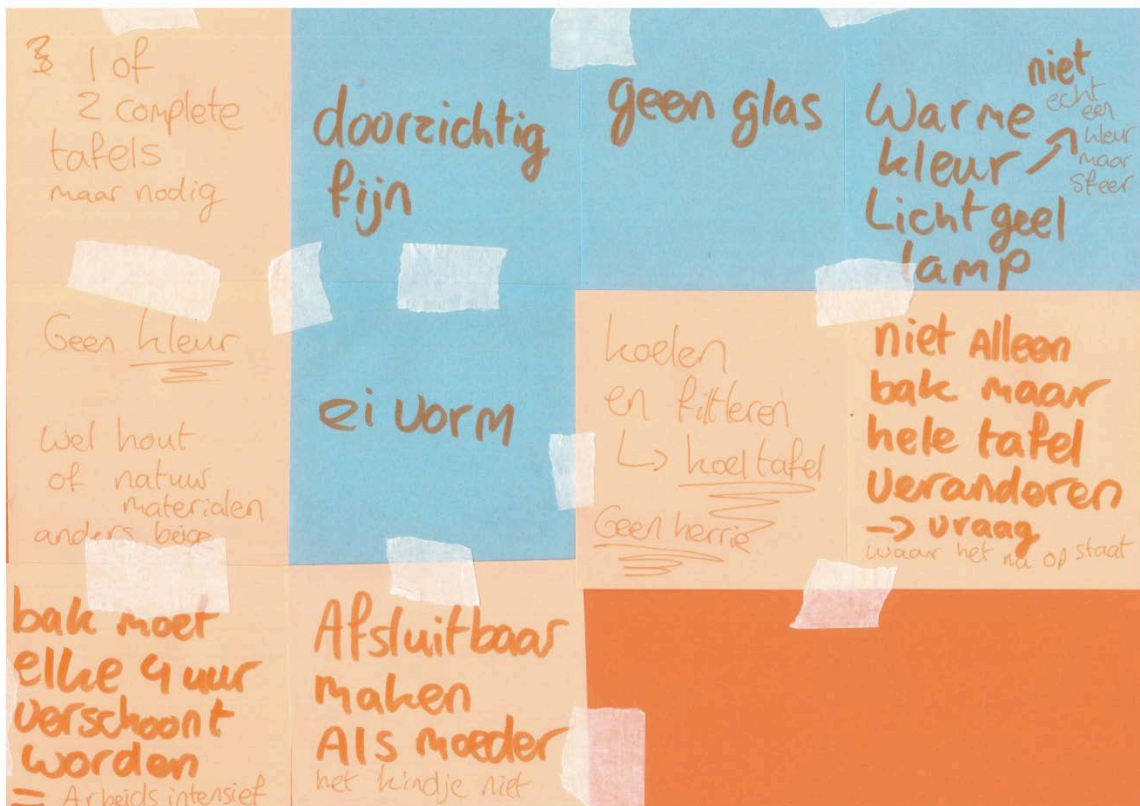 1 of
2 complete
tafels
maar nodig
doorzichtig
fijn
geen glas
Warme
kleur
niet
echt
een
kleur
maar
sfeer
Licht geel
lamp
Geen kleur
wel hout
of natuur
materialen
anders beige
ei vorm
koelen
en filteren
↳ koeltafel
Geen herrie
niet Alleen
bak maar
hele tafel
veranderen
→ vraag
waar het nu op staat
bak moet
elke 4 uur
verschoont
worden
= Arbeids intensief
Afsluitbaar
maken
Als moeder
het kindje niet